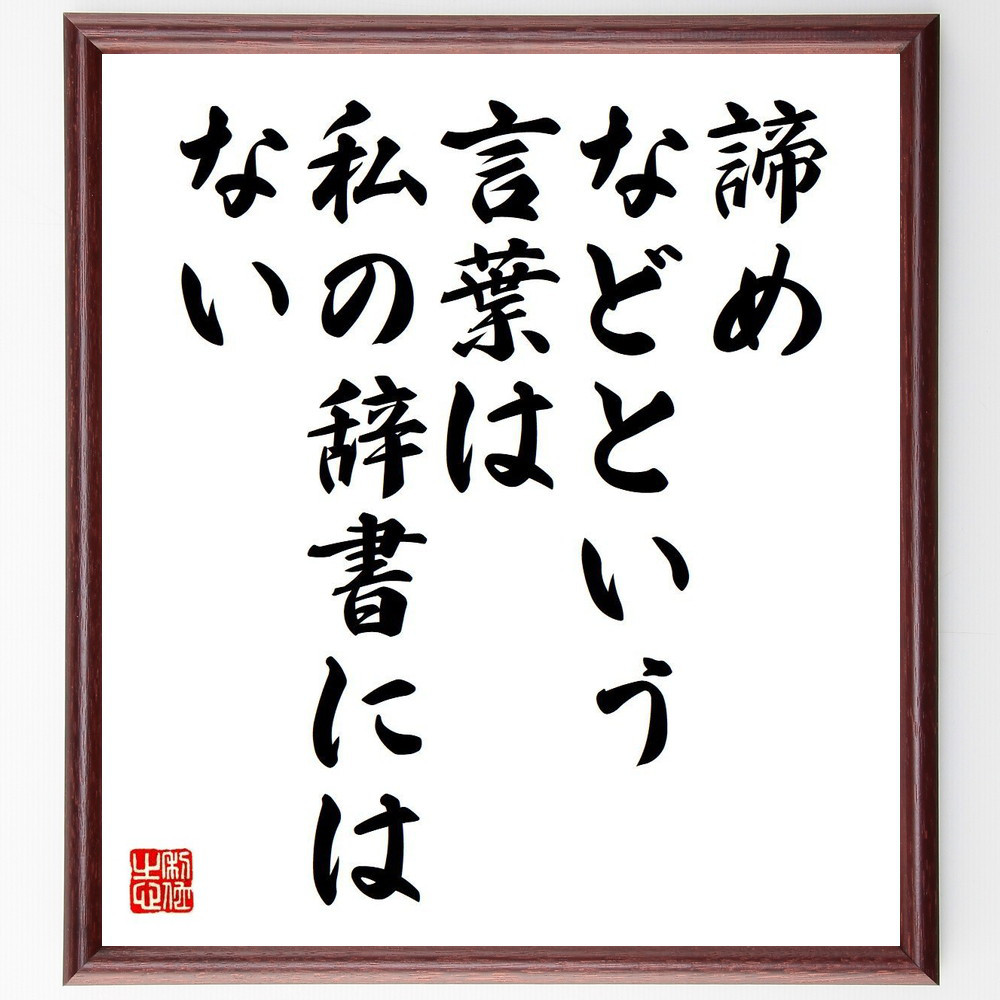 諦め
などという
言葉は
私の辞書には
ない